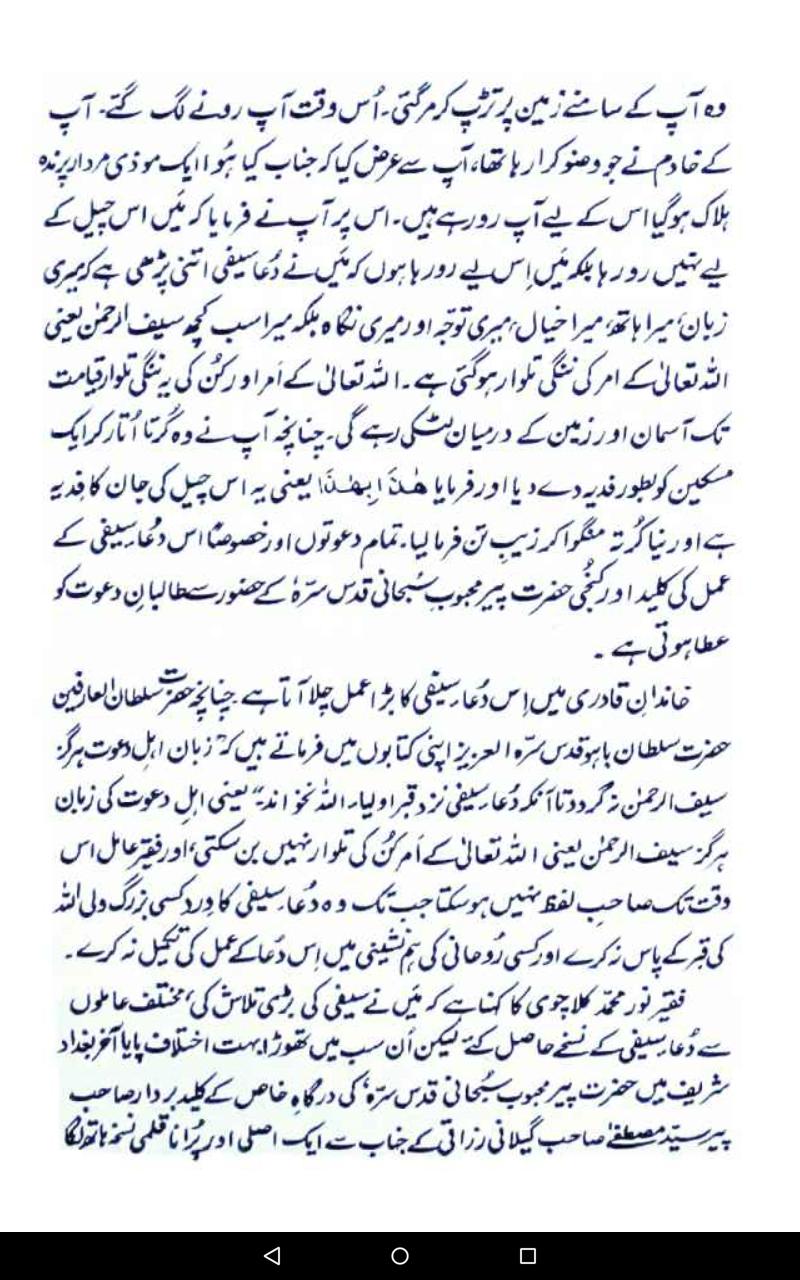 وہ آپ کے سامنے زمین پر تڑپ کر مر گئی۔ اُس وقت آپ رونے لگ گئے۔ آپ
کے خادم نے جو وضو کرا رہا تھا، آپ سے عرض کیا کہ جناب کیا ہُوا ایک موذی مردار پرندہ
ہلاک ہو گیا اس کے لیے آپ رو رہے ہیں۔ اس پر آپ نے فرمایا کہ مَیں اس چیل کے
لیے نہیں رو رہا بلکہ مَیں اِس لیے رو رہا ہوں کہ مَیں نے دُعا سیفی اتنی پڑھی ہے کہ میری
زبان، میرا ہاتھ، میرا خیال، میری توجّہ اور میری نگاہ بلکہ میرا سب کچھ سیف الرحمٰن یعنی
اللہ تعالیٰ کے امر کی ننگی تلوار ہو گئی ہے۔ اللہ تعالیٰ کے اَمر اور کُن کی یہ ننگی تلوار قیامت
تک آسمان اور زمین کے درمیان لٹکی رہے گی۔ چنانچہ آپ نے وہ کُرتا اُتار کر ایک
مسکین کو بطور فدیہ دے دیا اور فرمایا ھٰذَا بِھٰذَا یعنی یہ اس چیل کی جان کا فدیہ
ہے اور نیا کُرتہ منگوا کر زیبِ تن فرما لیا۔ تمام دعوتوں اور خصوصًا اس دُعا سیفی کے
عمل کی کلید اور کنجی حضرت پیر محبوبِ سُبحانی قدس سرّہٗ کے حضور سے طالبانِ دعوت کو
عطا ہوتی ہے۔
خاندانِ قادری میں اِس دُعا سیفی کا بڑا عمل چلا آتا ہے۔ چنانچہ حضرت سلطان العارفین
حضرت سلطان باہو قدس سرّہ العزیز اپنی کتابوں میں فرماتے ہیں کہ ”زبان اہلِ دعوت ہرگز
سیف الرحمٰن نہ گردد تا آنکہ دُعا سیفی نزد قبر اولیاء اللہ نخواند“ یعنی اہلِ دعوت کی زبان
ہرگز سیف الرحمٰن یعنی اللہ تعالیٰ کے اَمر کُن کی تلوار نہیں بن سکتی، اور فقیر عامل اس
وقت تک صاحبِ لفظ نہیں ہو سکتا جب تک وہ دُعا سیفی کا وِرد کسی بزرگ ولی اللہ
کی قبر کے پاس نہ کرے اور کسی رُوحانی کی ہم نشینی میں اِس دُعا کے عمل کی تکمیل نہ کرے۔
فقیر نور محمّد کلاچوی کا کہنا ہے کہ مَیں نے سیفی کی بڑی تلاش کی، مختلف عاملوں
سے دُعا سیفی کے نسخے حاصل کئے لیکن اُن سب میں تھوڑا بہت اختلاف پایا۔ آخر بغداد
شریف میں حضرت پیر محبوب سُبحانی قدس سرّہٗ کی درگاہِ خاص کے کلید بردار صاحب
پیر سیّد مصطفےٰ صاحب گیلانی رزاقی کے جناب سے ایک اصلی اور پُرانا قلمی نسخہ ہاتھ لگا